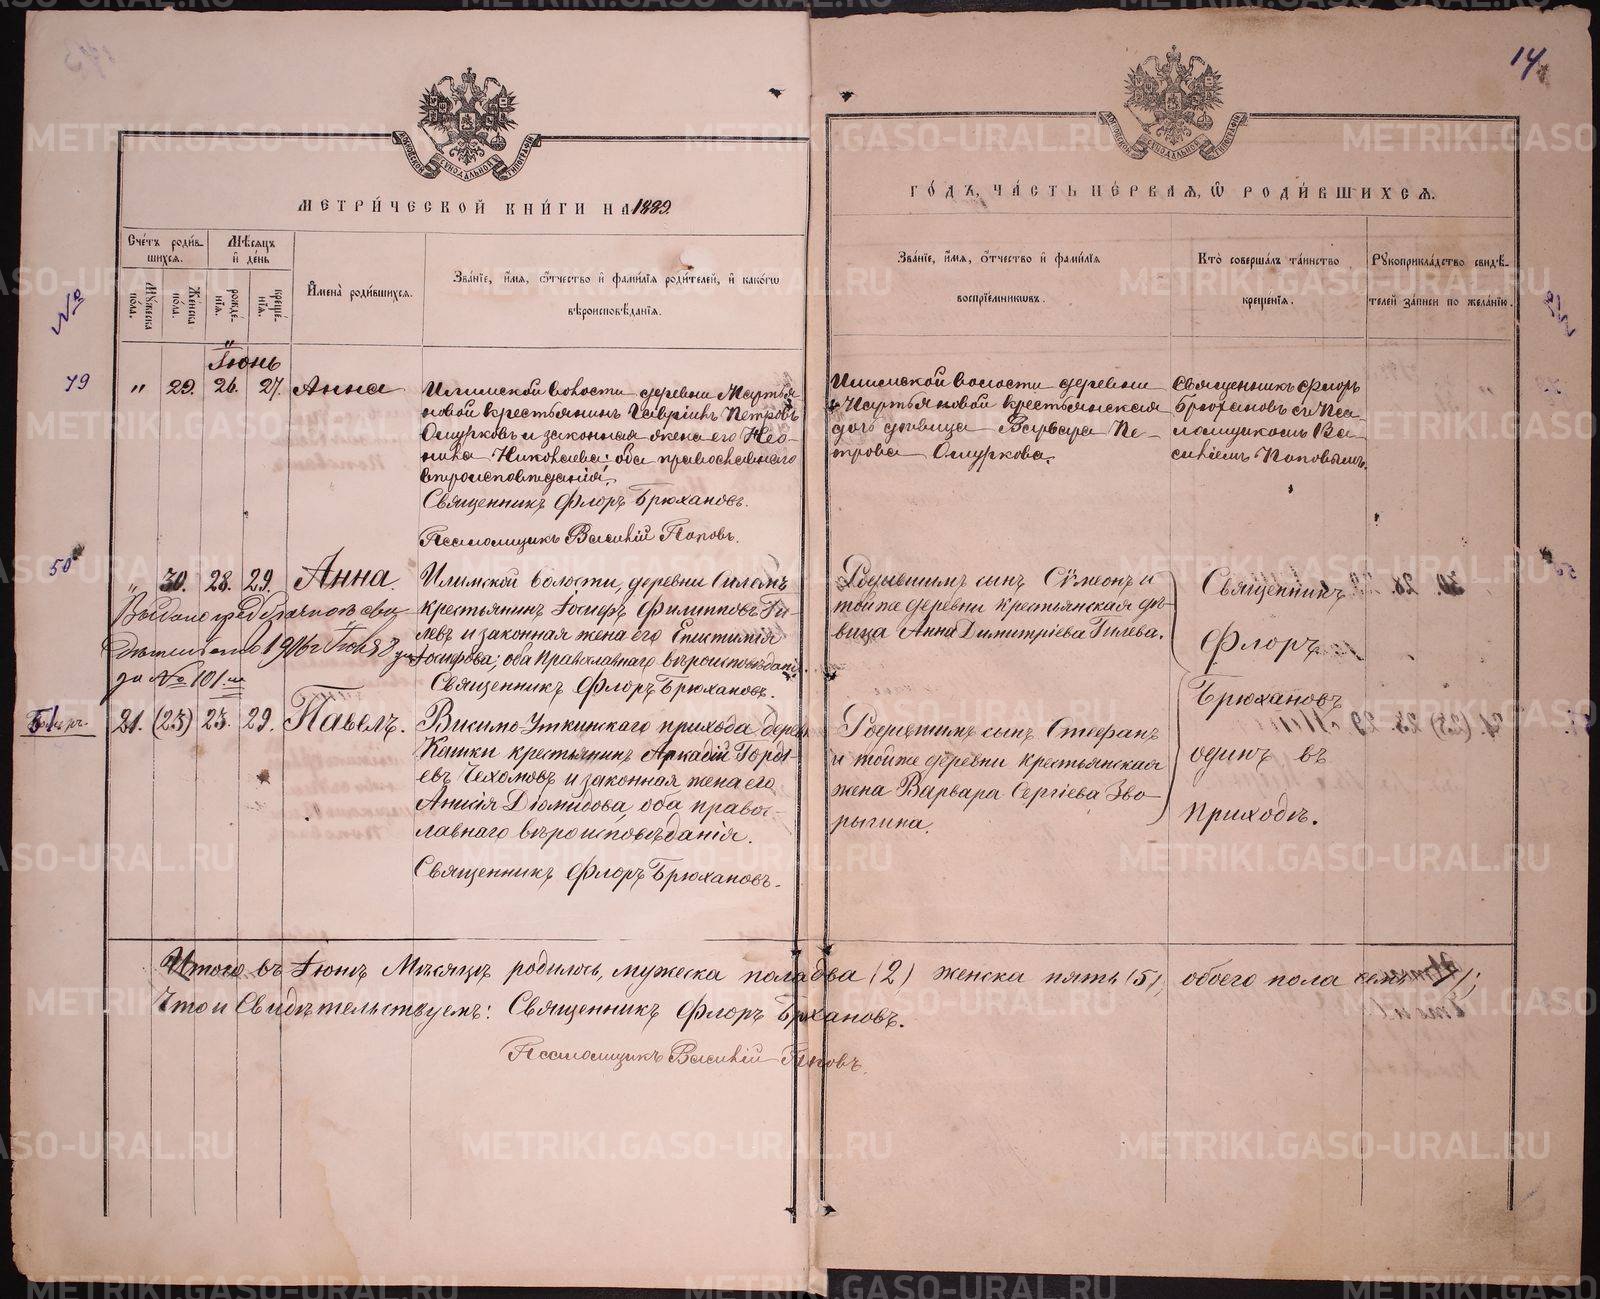 14
МЕТРИ́ЧЕСКОЙ КНИ́ГИ НА 1889.
ГО́ДЪ, ЧА́СТЬ ПЕ́РВАЯ, Ѽ РОДИ́ВШИХСѦ.
Сче́тъ роди́в-
шихсѧ.
Мѣ́сѧцъ
и́ де́нь
Мꙋ́жеска
пола.
Же́нска
пола.
рожде́-
нїѧ.
креще́-
нїѧ.
И҆мена̀ роди́вшихсѧ.
Зва́нїе, и҆́мѧ, ѻ҆́тчество и҆ фами́лїѧ роди́телей, и҆ како́гѡ
вѣроисповѣ́данїѧ.
Зва́нїе, и҆́мѧ, ѻ҆́тчество и҆ фами́лїѧ
воспрїе́мникѡвъ.
Кто̀ соверша́лъ та́инство
креще́нїѧ.
Рꙋкоприкла́дство свидѣ́-
телей за́писи по жела́нїю.
№
Іюнь
" 29. 26. 27. Анна
Илимской волости деревни Мартья-
новой крестьянинъ Гавріилъ Петровъ
Ошурковъ и законная жена его Нео-
нила Николаева; оба православнаго
вѣроисповѣданія.
Священникъ Флоръ Брюхановъ.
Псаломщикъ Василій Поповъ.
Илимской волости деревни
Мартьяновой крестьянская
дочь дѣвица Варвара Пе-
трова Ошуркова.
Священникъ Флоръ
Брюхановъ съ Пса-
ломщикомъ Ва-
силіемъ Поповымъ.
50
" 30. 28. 29. Анна.
Илимской волости, деревни
крестьянинъ Іосифъ Филипповъ Ги-
левъ и законная жена его Епистимія
Іосифова; оба Православнаго вѣроисповѣданія.
Священникъ Флоръ Брюхановъ.
Выдано
1916 г.
за № 101.
Родившимъ сынъ Сѷмеонъ и
той же деревни крестьянская дѣ-
вица Анна Димитріева Гилева.
Священникъ
Флоръ
Брюхановъ
одинъ въ
Приходѣ.
51
21. (23) 23. 29. Павелъ.
Висимо-Уткинскаго прихода дерев.
Кашки крестьянинъ Аркадій Горді-
евъ Чехомовъ и законная жена его
Анисія Діомидова, оба право-
славнаго вѣроисповѣданія.
Священникъ Флоръ Брюхановъ.
Родившимъ сынъ Стефанъ
и той же деревни крестьянская
жена Варвара Сергіева Зво-
рыгина.
Итого въ Іюнѣ Мѣсяцѣ родилось, мужеска пола два (2) женска пять (5), обоего пола семь 7);
Что и Свидѣтельствуемъ: Священникъ Флоръ Брхановъ.
Псаломщикъ Василій Поповъ.